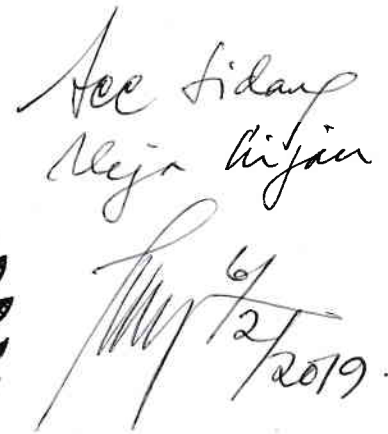 Acc Sidang
Meja Hijau
6/2/2019.